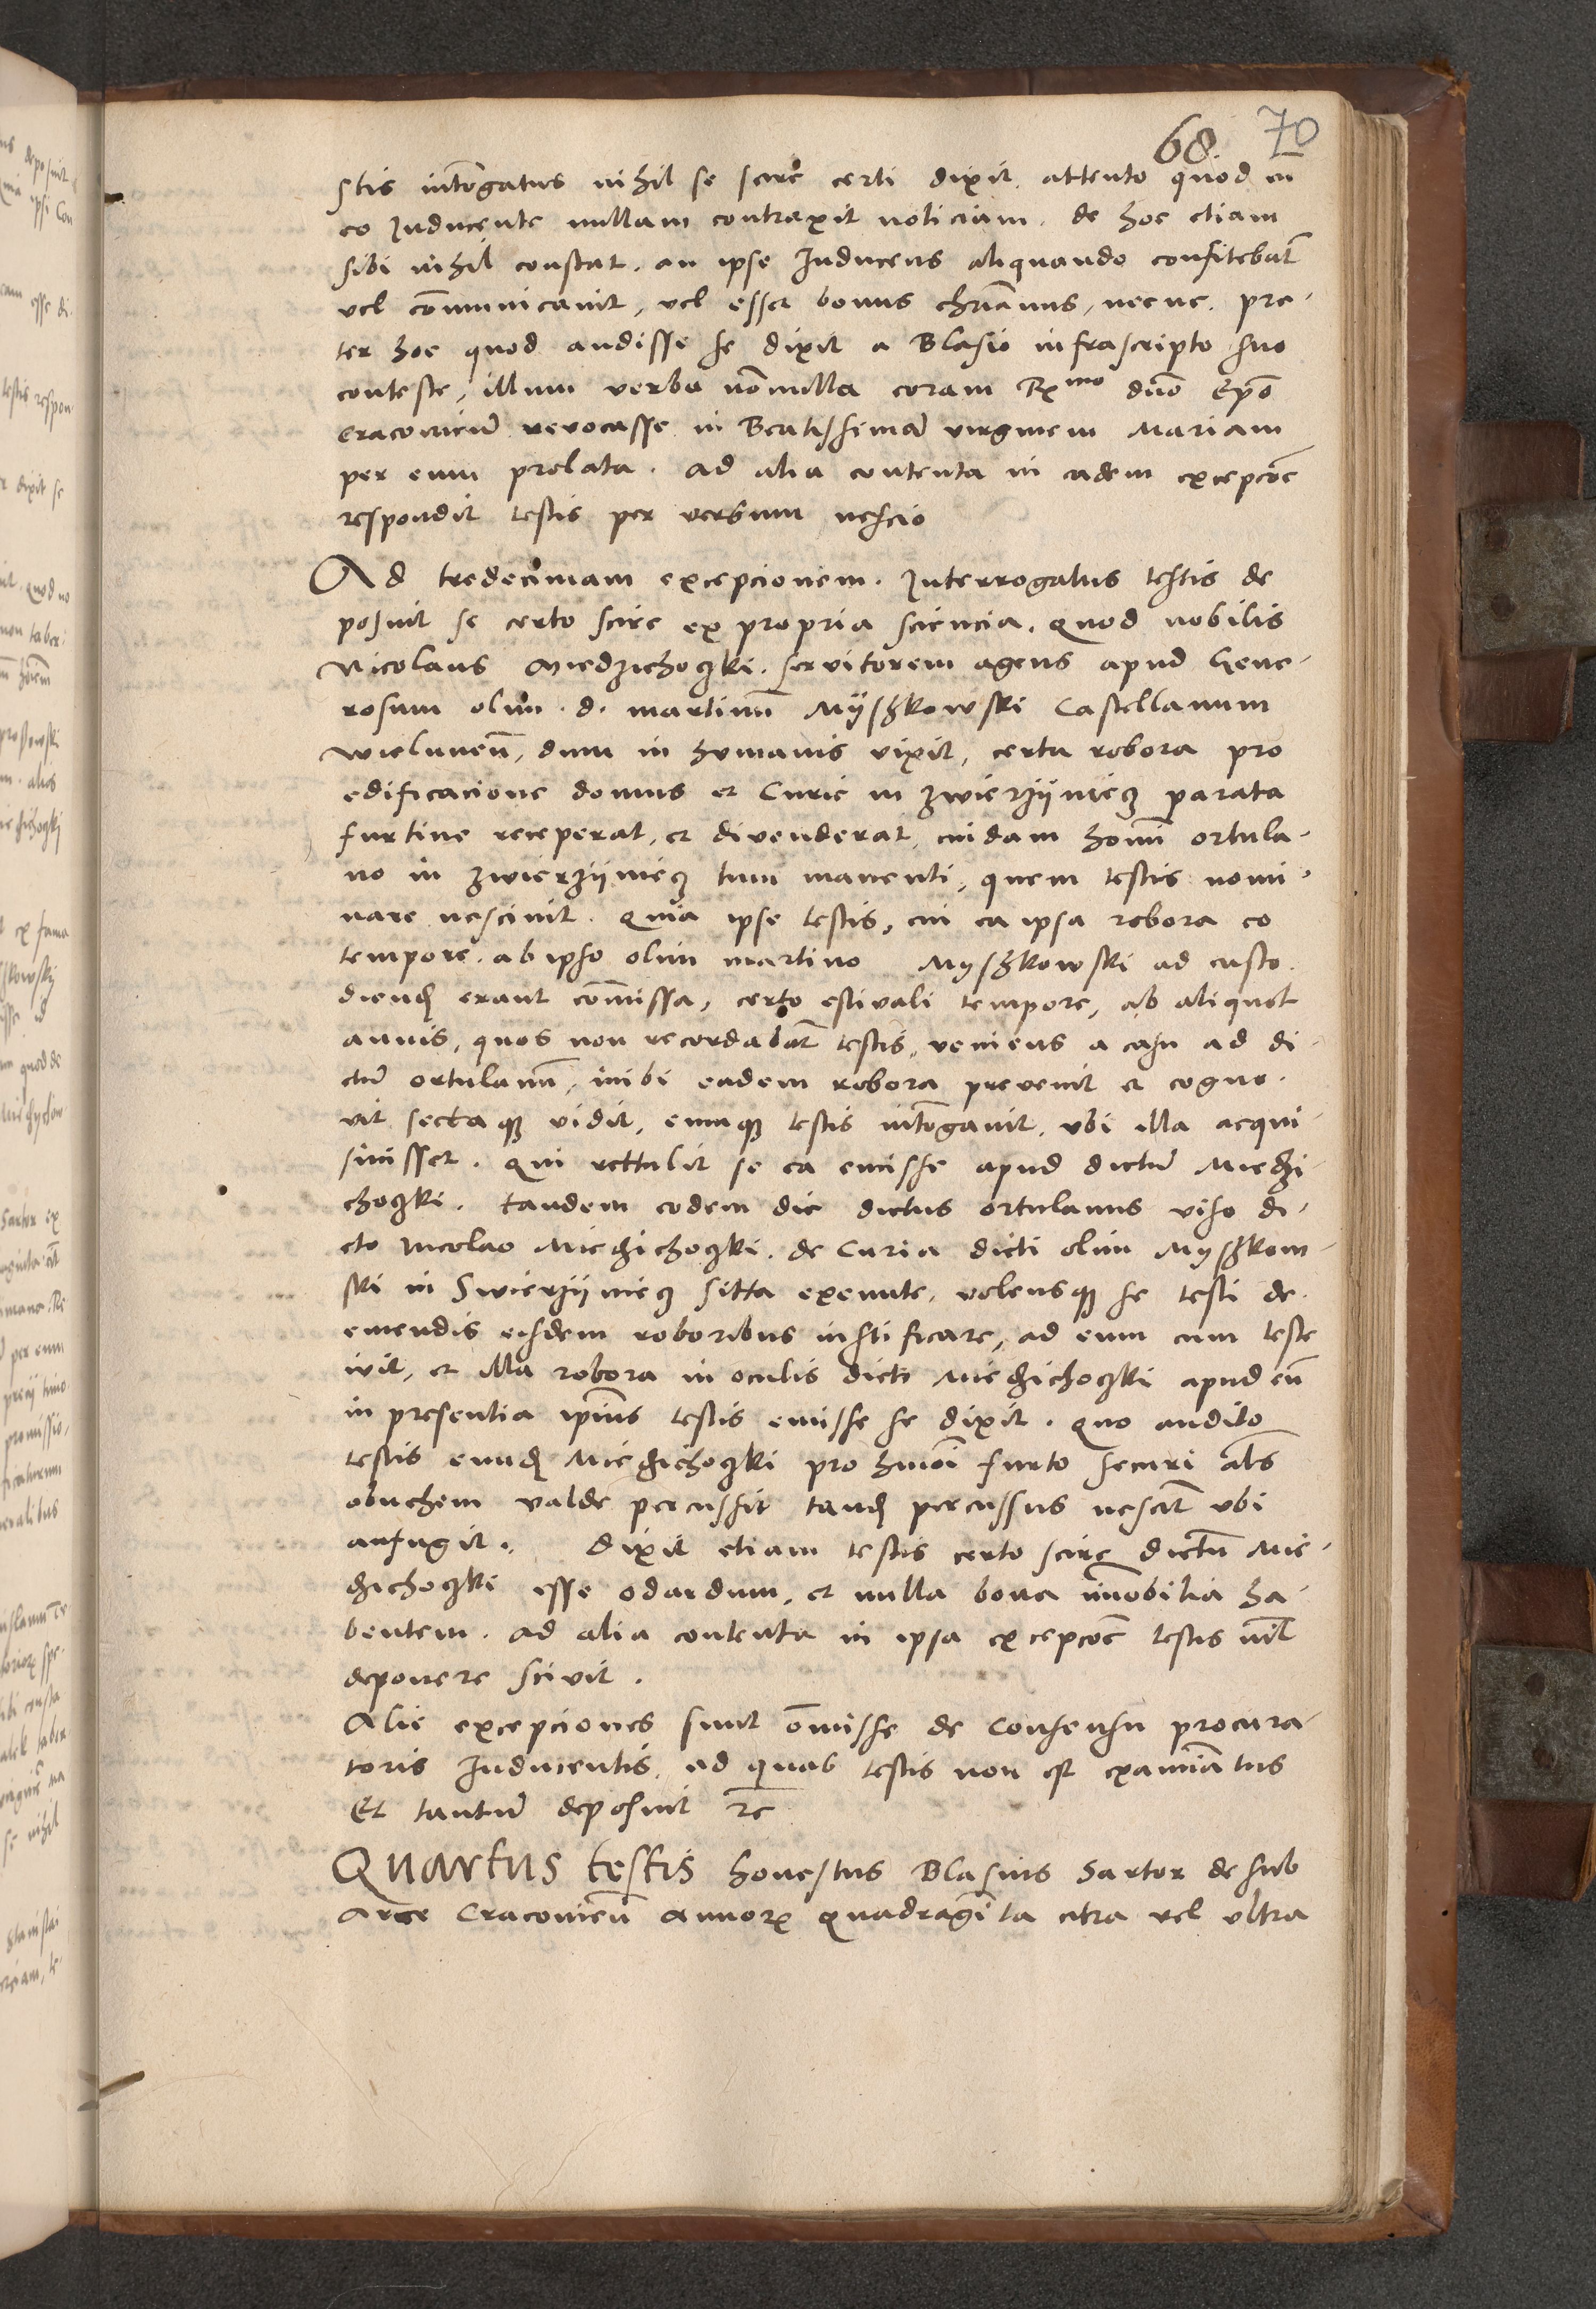 68. 70
stis intőgatus nihil se scire certi dixit. attento quod in
eo Inducente nullam contraxit noticiam. de hoc etiam
sibi nihil constat. an ipse Inducens aliquando confitebať
vel cōmunicavit, vel esset bonus chrīanus, necne. pre-
ter hoc quod audisse se dixit a Blasio infrascripto suo
conteste, illum verba nōnulla coram Rx^mo dūo Epō
Cracovieñ revocasse in Beatissimā virginem Mariam
per eum prolata. Ad alia contenta in eadem excepcōe
respondit testis per verbum nescio
Ad tredecimam excepcionem. Interrogatus testis de
posuit se certo scire ex propria sciencia. quod nobilis
Nicolaus Miedzichoczki. servitorem agens apud Gene-
rosum olim. d. martinū Mÿszkowski Castellanum
wieluneñ, dum in humanis vixit, certa robora pro
edificacione domus et Curie in Zwierzÿniecz parata
furtive receperat, et divenderat, cuidam homī ortula-
no in Zwierzÿniecz tum manenti, quem testis nomi-
nare nescivit. Quia ipse testis, cui ea ipsa robora eo
tempore. ab ipso olim martino Myszkowski ad custo-
diend erant cōmissa, certo estivali tempore, ab aliquot
annis, quos non recordabať testis, veniens a casu ad di-
ctū ortulanū, inibi eadem robora prevenit et cogno-
vit sectaq vidit, eumq testis intőgavit. vbi illa acqui-
sivisset. Qui rettulit se ea emisse apud dictū Miedzi-
choczki. tandem eodem die dictus ortulanus viso di-
cto Nicolao Miedzichoczki. de Curia dicti olim Myszkow-
ski in Swierzÿniecz sitta exeunte. volensq se testi de
emendis eisdem roboribus iustificare, ad eum cum teste
ivit, et illa robora in oculis dicti Miedzichoczki apud eū
in presentia ipīus testis emisse se dixit. Quo audito
testis eund Miedzichoczki pro hmōi furto securi als
obuchem valde percussit tand percussus nescit vbi
aufugit. Dixit etiam testis certo scire dictū Mie-
dzichoczki esse odardum, et nulla bona īmobilia ha-
bentem. Ad alia contenta in ipsa excepcōe testis nil
deponere scivit.
Alie excepciones sunt ōmisse de Consensu procura-
toris Inducentis. ad quas testis non est examināatus
Et tantū deposuit &c
Quartus testis honestus Blasius Sartor de sub
Arce Cracovieñ Annorx quadragīta citra vel vltra